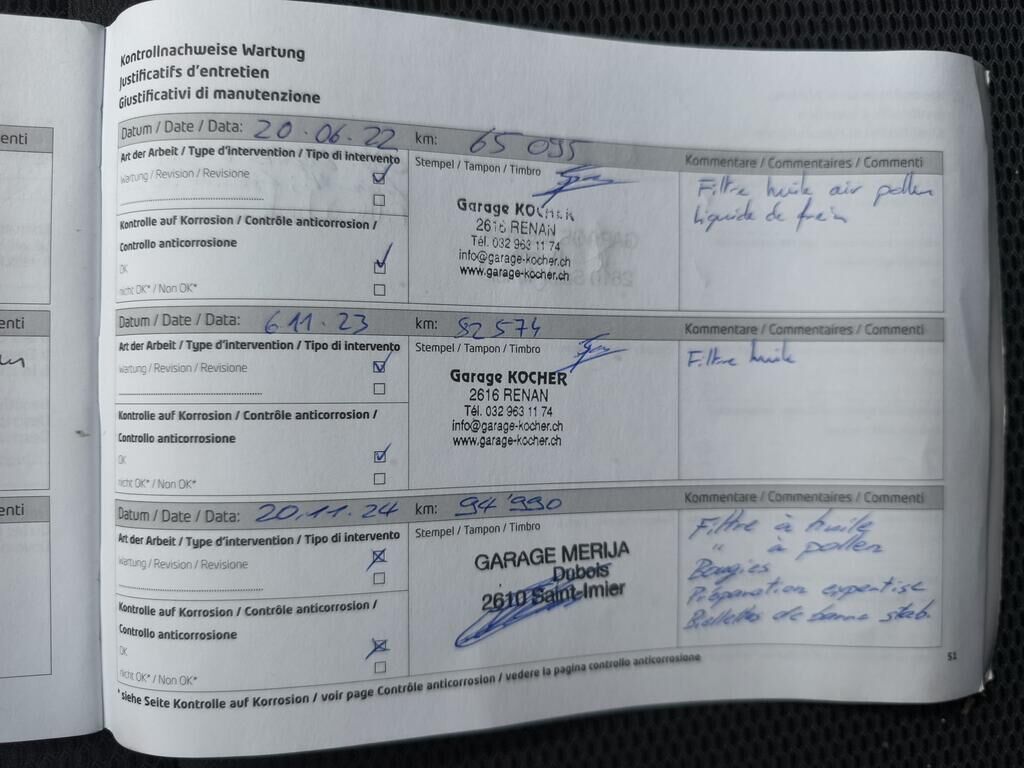 Kontrollnachweise Wartung
Justificatifs d'entretien
Giustificativi di manutenzione
enti
Datum / Date / Data: 20.06.22 km: 65 095
Art der Arbeit / Type d'intervention / Tipo di intervento
Wartung / Revision / Revisione
Kontrolle auf Korrosion / Contrôle anticorrosion /
Controllo anticorrosione
OK
nicht OK* / Non OK*
Stempel / Tampon / Timbro
Garage KOCHER
2616 RENAN
Tél. 032 963 11 74
info@garage-kocher.ch
www.garage-kocher.ch
Kommentare / Commentaires / Commenti
Filtre huile air pollen
Liquide de frein
enti
Datum / Date / Data: 6 11.23 km: 82 574
Art der Arbeit / Type d'intervention / Tipo di intervento
Wartung / Revision / Revisione
Kontrolle auf Korrosion / Contrôle anticorrosion /
Controllo anticorrosione
OK
nicht OK* / Non OK*
Stempel / Tampon / Timbro
Garage KOCHER
2616 RENAN
Tél. 032 963 11 74
info@garage-kocher.ch
www.garage-kocher.ch
Kommentare / Commentaires / Commenti
Filtre huile
enti
Datum / Date / Data: 20.11.24 km: 94'990
Art der Arbeit / Type d'intervention / Tipo di intervento
Wartung / Revision / Revisione
Kontrolle auf Korrosion / Contrôle anticorrosion /
Controllo anticorrosione
OK
nicht OK* / Non OK*
Stempel / Tampon / Timbro
GARAGE MERIJA
Dubois
2610 Saint-Imier
Kommentare / Commentaires / Commenti
Filtre à huile
" à pollen
Bougies
Préparation expertise
Biellettes de barre stab.
* siehe Seite Kontrolle auf Korrosion / voir page Contrôle anticorrosion / vedere la pagina controllo anticorrosione
51